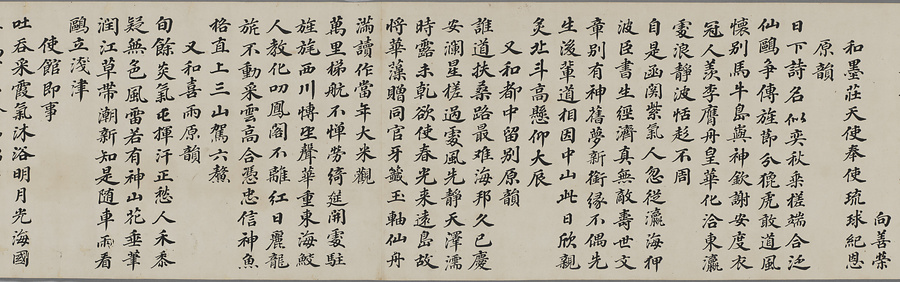 向善榮
和墨莊天使奉使琉球紀恩
原韻
日下詩名似奕秋乘槎端合泛
仙鷗爭傳旌節分貔虎敢道風
懷別馬牛島與神欽謝安度衣
冠人羨李膺舟皇華化洽東瀛
處浪靜波恬趁不周
自是函関紫氣人忽從瀛海狎
波臣書生經濟真無敵壽世文
章別有神舊夢新銜緣不偶先
生後輩道相因中山此日欣親
炙北斗高懸仰大辰
又和都中留別原韻
誰道扶桑路最难海邦久已慶
安瀾星槎過處風先靜天澤濡
時露未乾欲使春光来遠島故
將華藻贈同官牙籤玉軸仙舟
滿讀作當年大米觀
萬里梯航不憚勞綺筵開處駐
旌旄西川愽望聲華重東海鮫
人教化叨鳳閣不離紅日麗龍
旂不動采雲高合憑忠信神魚
格直上三山駕六鰲
又和喜雨原韻
旬餘炎氣屯揮汗正愁人禾黍
疑無色風雷若有神山花垂萼
潤江草帶潮新知是随車雨看
鷗立淺津
使館即事
吐吞采霞氣沐浴明月光海國